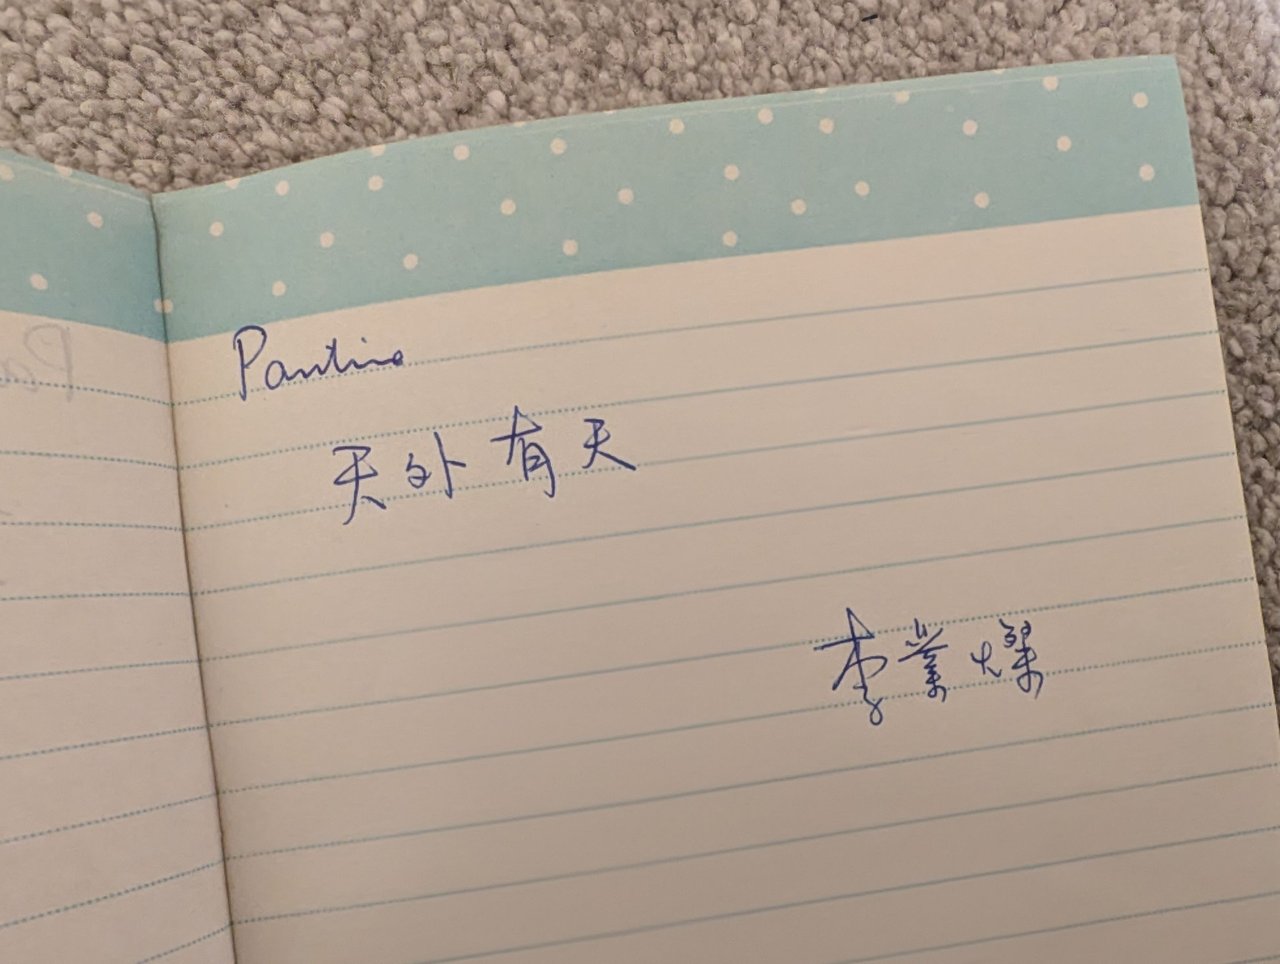 Pauline
天外有天
李業燦